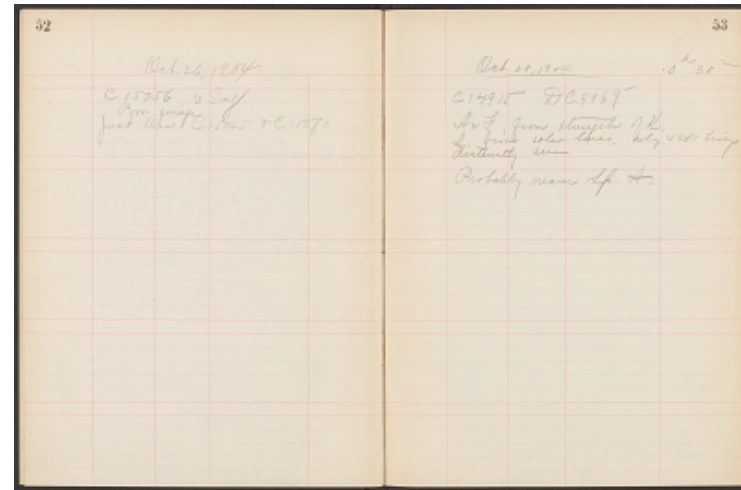 52
Oct. 26, 1904
C 15056 v Sag
Poor image
just seen C 15045 & C
53
Oct. 28, 1904
0 h 38 m
C 14915 DC 9969
A or F, from strength of K.
from solar lines, only 4481 being
distinctly seen
Probably nearer Sp. A.